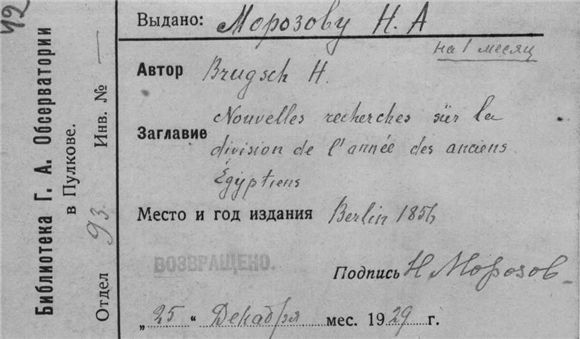 42
Библиотека Г. А. Обсерватории
в Пулкове.
Отдел 93 Инв. № —
Выдано: Морозову Н. А
на 1 месяц
Автор Brugsch H.
Nouvelles recherches sur la
Заглавие division de l'année des anciens
Égyptiens
Место и год издания Berlin 1856
ВОЗВРАЩЕНО.
Подпись Н Морозов
„25“ Декабря мес. 1929 г.